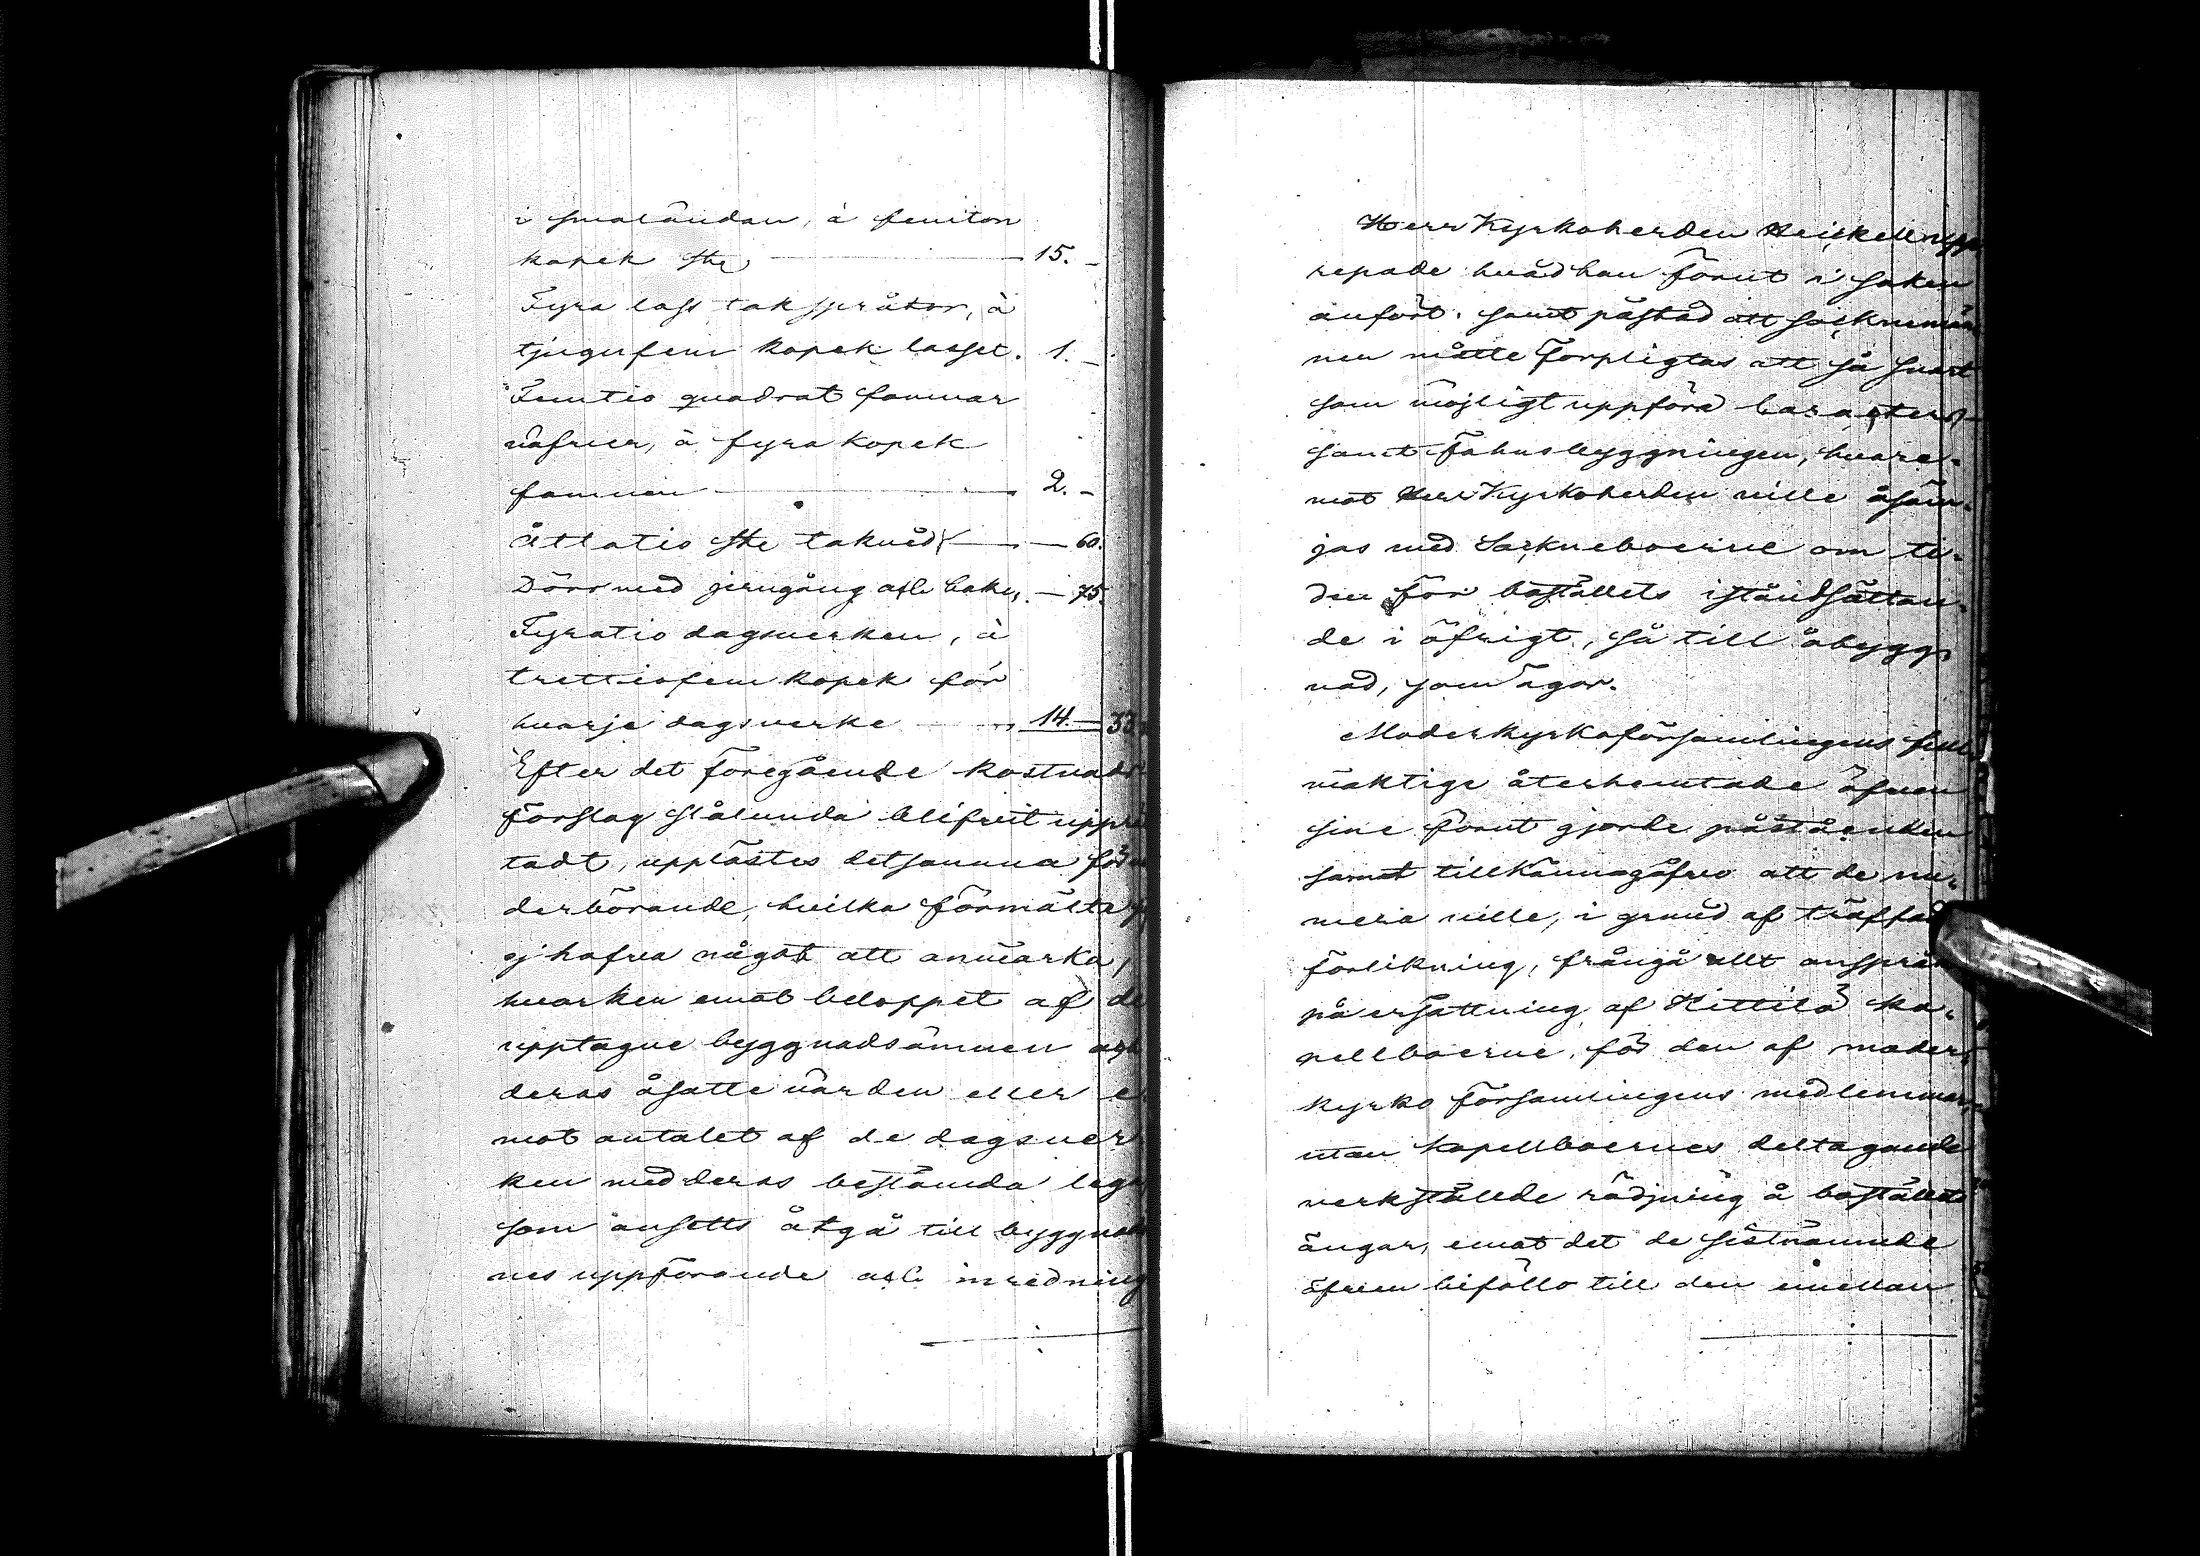 i smaländan, à femton
kopek st. 15. –
Fyra lass taksprätor, à
tjugufem kopek lasset. 1. –
Femtio quadrat famnar
näfver, à fyra kopek
famnen 2. –
åttatio st. takved – 60.
Dörr med jerngång och bak – 75.
Fyratio dagsverken, à
trettiofem kopek för
hvarje dagsverke 14. – 33
Efter det föregående kostnads
förslag sålunda blifvit uppr
tadt, upplästes detsamma för
derbörande, hvilka förmälte
ej hafva något att anmärka,
hvarken emot beloppet af de
upptagne byggnadsämnen och
deras åsatte värden eller e
mot antalet af de dagsver
ken med deras bestämda lega
som ansetts åtgå till byggnad
nes uppförande och inredning
Herr Kyrkoherden Heickell upp
repade hvad han förut i saken
anfört. samt påstod att socknemän
nen måtte förpligtas att så snart
som möjligt uppföra
samt fähusbyggningen, hvare-
mot Herr Kyrkoherden ville åsäm-
jas med Sockneboerne om ti-
den för boställets iståndsättan-
de i öfrigt, så till åbygg-
nad, som ägor.
Moderkyrkoförsamlingens full
mäktige återhemtade äfven
sine förut gjorde påståenden
samt tillkännagåfvo att de nu-
mera ville, i grund af träffad
förlikning, frångå allt anspråk
på ersättning af Kittilä ka-
pellboerne, för den af moder-
kyrko församlingens medlemmar,
utan kapellboernes deltagande
verkställde rödjning å boställets
ängar, emot det de sistnämnde
äfven biföllo till den emellan